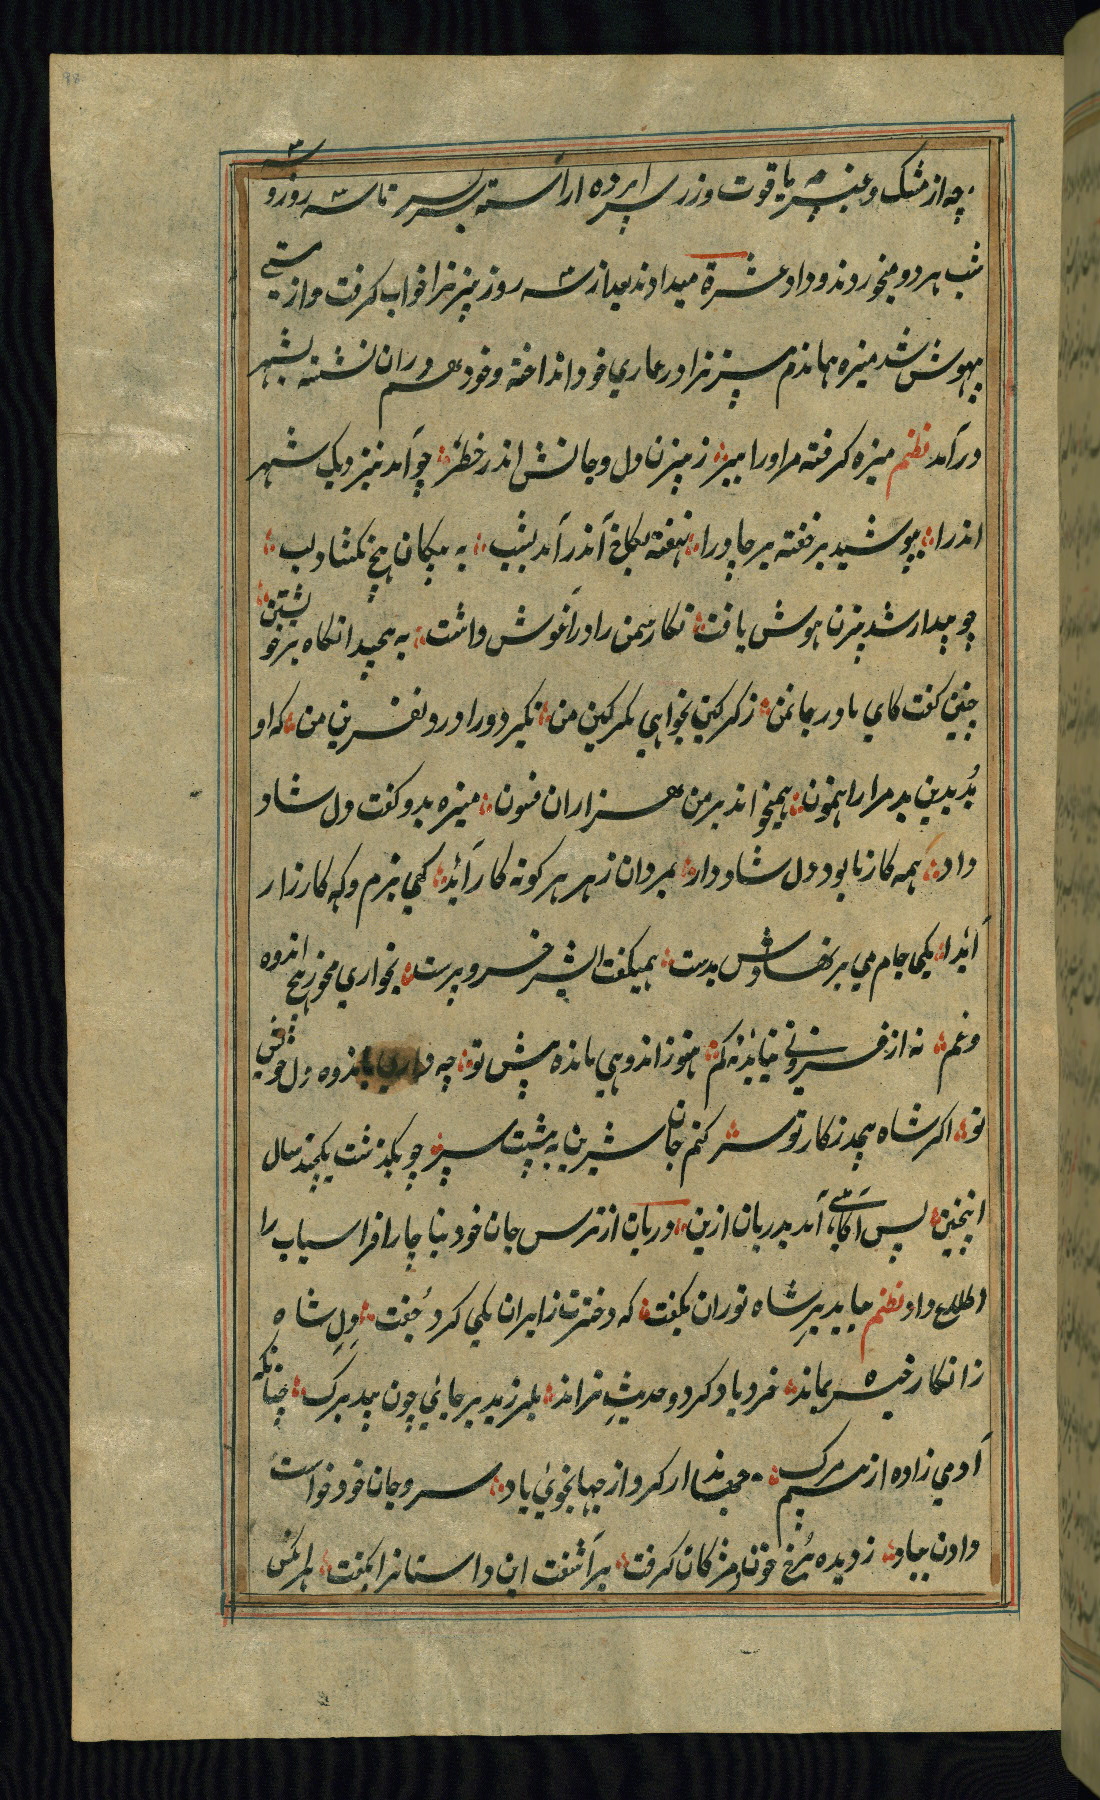 چه از مشک و عنبر چه یاقوت و زر سراپرده آراسته سربسر تا سه روز و سه
شب هر دو میخوردند و داد عشرة میدادند بعد از سه روز بیژنرا خواب گرفت و از مستی
بیهوش شد منیژه هماندم بیژنرا در عماری خود انداخته و خود هم دران نشسته بشهر
درآمد نظم منیژه گرفته مر اورا ببر ز بیژن دل و جانش اندر خطر چو آمد بنزدیک شهر
اندرا بپوشید بر خفته بر چادرا نهفته بکاخ اندر آمد بشب به بیگان هیچ نگشاد لب
چو بیدار شد بیژن هوش یافت نگار سمن را در آغوش داشت به پیچید آنگاه بر خویشتن
چنین گفت کای داور جان من ز گرگین بخواهی مگر کین من نگیرد ورا درو نفرین من که او
بُد بدین بد مرا رهنمون همیخواند بر من هزاران فسون منیژه بدو گفت دل شاد
دار همه کار نابود دل شاد دار بمردان ز هر گونه کار آید گهی بزم و گه کارزار
آیدا یکی جام می بر نهادش بدست همیگفت خسرو پرست بخواری مخور هیچ اندوه
و غم نه از فزونی نیاید نه کم هنوز اندوهی مانده پیش تو چه داری باندوه دل خویش
تو اگر شاه پیچد ز کار تو سر کنم جان شیرین به پیشت سپر چو بگذشت یکچند سال
اینچنین پس آگاهی آمد بدربان ازین دربان از ترس جان خود بناچار افراسیاب را
اطلاع داد نظم بیامد برِ شاه توران بگفت که دخترت ز ایران یکی کرد جُفت دلِ شاه
زان کار خیره بماند خرد یاد کرد و حدیثِ نراند بلرزید بر جای چون بید برگ چنانکه
آدمی زاده از بیم مرگ جهاندار کرد از جهانجوی یاد سر و جان خود خواست
دادن بباد ز دیده رُخ خون مژگان گرفت برآشفت این داستانرا بگفت هر آنکس